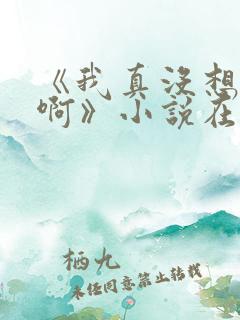 《我真没想
啊》小说在
栖九
未经同意禁止转载